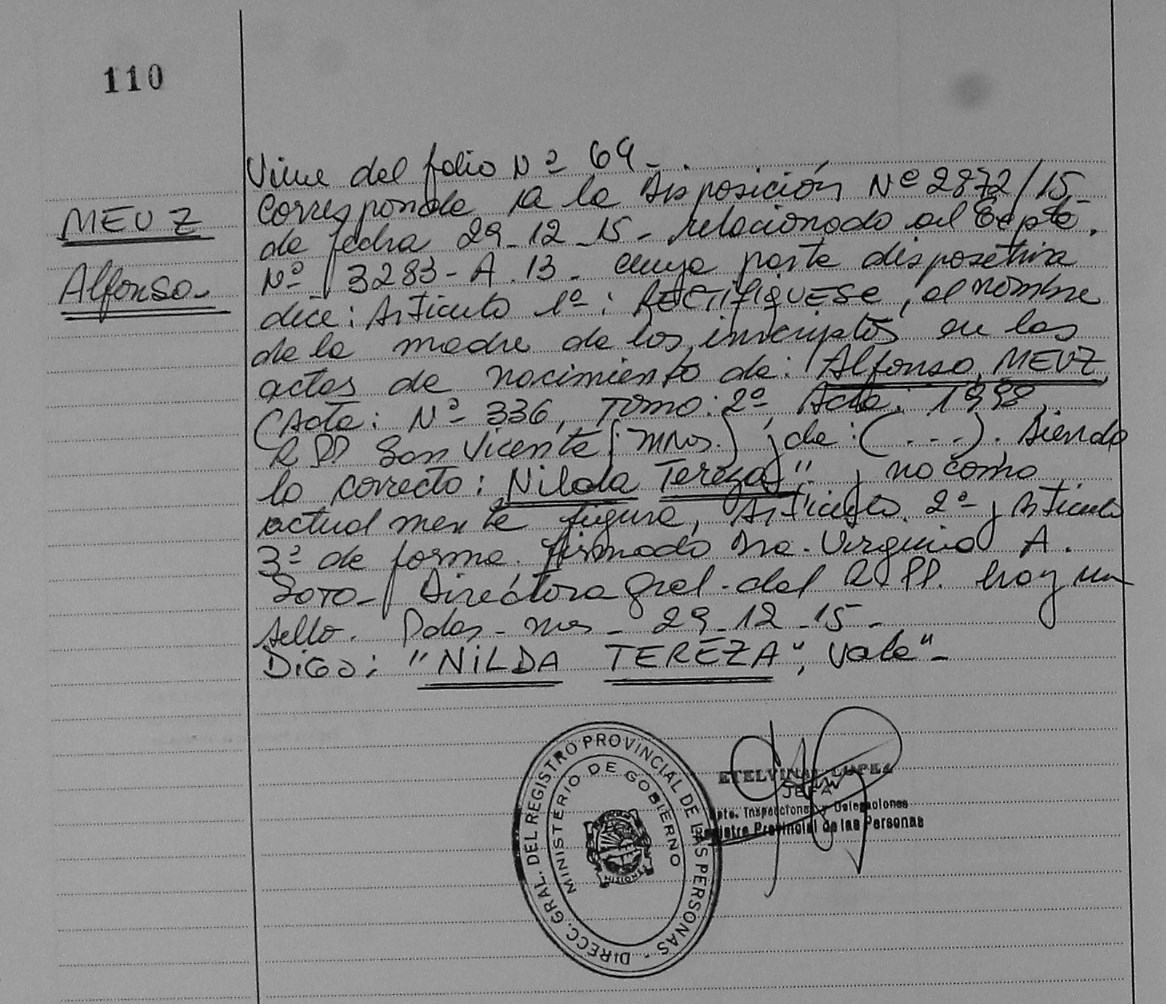 110
MEUZ
Alfonso-
Viene del folio Nº 69-.
Corresponde a la Disposición Nº 2872/15-
de fecha 29-12-15- relacionado al Expte.
Nº 3283-A.13- cuya parte dispositiva
dice: Artículo 1º: RECTIFIQUESE, el nombre
de la madre de los inscriptos en las
actas de nacimiento de: Alfonso MEUZ
(Acta: Nº 336, Tomo: 2º
R PP San Vicente (mnes.), de: (...). Siendo
lo correcto: Nilda Tereza", no como
actualmente figura, Artículo 2º y Artículo
3º de forma. firmado Dra. Virginia A.
Soto- Directora Gral. del R.PP. hay un
sello. Pdas-mnes- 29-12-15-
DIGO: "NILDA TEREZA", Vale"-
ETELVINA LOPEZ
JEFA
Dpto. Inspecciones y Delegaciones
Registro Provincial de las Personas
DIRECC. GRAL. DEL REGISTRO PROVINCIAL DE LAS PERSONAS -
MINISTERIO DE GOBIERNO